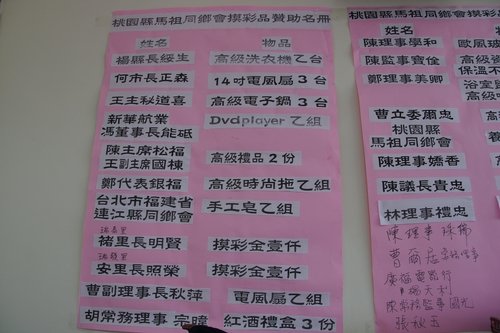 桃園縣馬祖同鄉會摸彩品贊助名冊
姓名 物品
楊縣長綏生 高級洗衣機乙台
何市長正森 14吋電風扇3台
王主秘道喜 高級電子鍋3台
新華航業
馮董事長能砥 Dvd player乙組
陳主席松福
王副主席國棟 高級禮品2份
鄭代表銀福 高級時尚拖乙組
台北市福建省
連江縣同鄉會 手工皂乙組
褚里長明賢 摸彩金壹仟
安里長照榮 摸彩金壹仟
曹副理事長秋萍 電風扇乙組
胡常務理事宗暐 紅酒禮盒3份
桃園縣馬祖同鄉會摸彩
姓名
陳理事學和 歐風
陳監事寶佺 高級
保溫不
鄭理事美卿 浴室
高級
曹立委爾忠
桃園縣
馬祖同鄉會
陳理事嬌香
陳議長貴忠
林理事禮忠
陳理事
曹爾
廣福電器行
陳常務監事國光
張